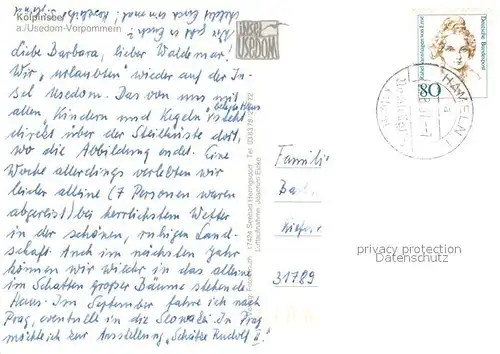 Kölpinsee
a./Usedom-Vorpommern
Liebe Barbara, lieber Waldemar!
Wir „urlaubten" wieder auf der In-
sel Usedom. Das von uns mit
allen, Kindern und Kegeln belegte Haus steht
direkt über der Steilküste dort,
wo die Abbildung endet. Eine
Woche allerdings verlebten wir
leider alleine (7 Personen waren
abgereist) bei herrlichstem Wetter
in der schönen, ruhigen Land-
schaft. Auch im nächsten Jahr
können wir wieder in das alleine
im Schatten großer Bäume stehende
Haus. Im September fahre ich nach
Prag, eventuell in die Slowakei. In Prag
möchte ich zur Ausstellung „Schätze Rudolf II."
Insel
Usedom
17424 Seebad Heringsdorf
Luftaufnahme: Joachim
Familie
Kiefer
31789
Deutsche Bundespost
80
HAMELN 1
privacy protection
Datenschutz